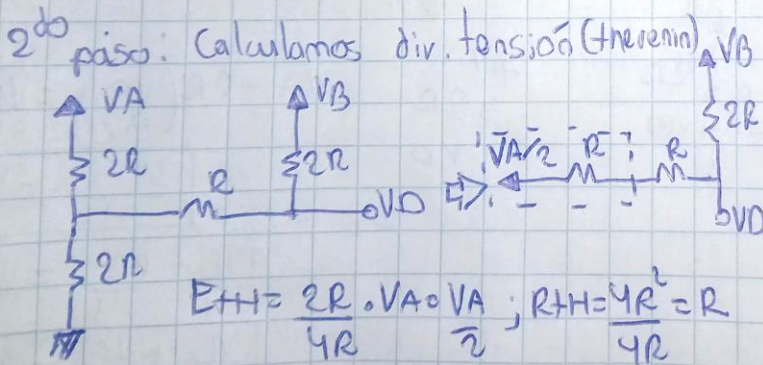 2do paso: Calculamos div. tensión (thevenin)
VA VB VB
2R 2R 2R
R VA/2 R R
VD VD
2R
ETH = 2R/4R . VA = VA/2 ; RTH = 4R²/4R = R